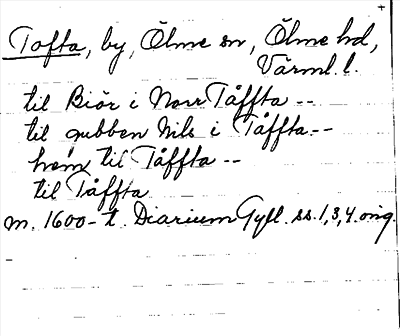 Tofta, by, Ölme sn, Ölme hd,
Värml. l.
til Biör i Norr Tåffta --
til gubben Nils i Tåffta --
hem til Tåffta --
til Tåffta
m. 1600-t. Diarium Gyll. ss. 1, 3, 4. orig.